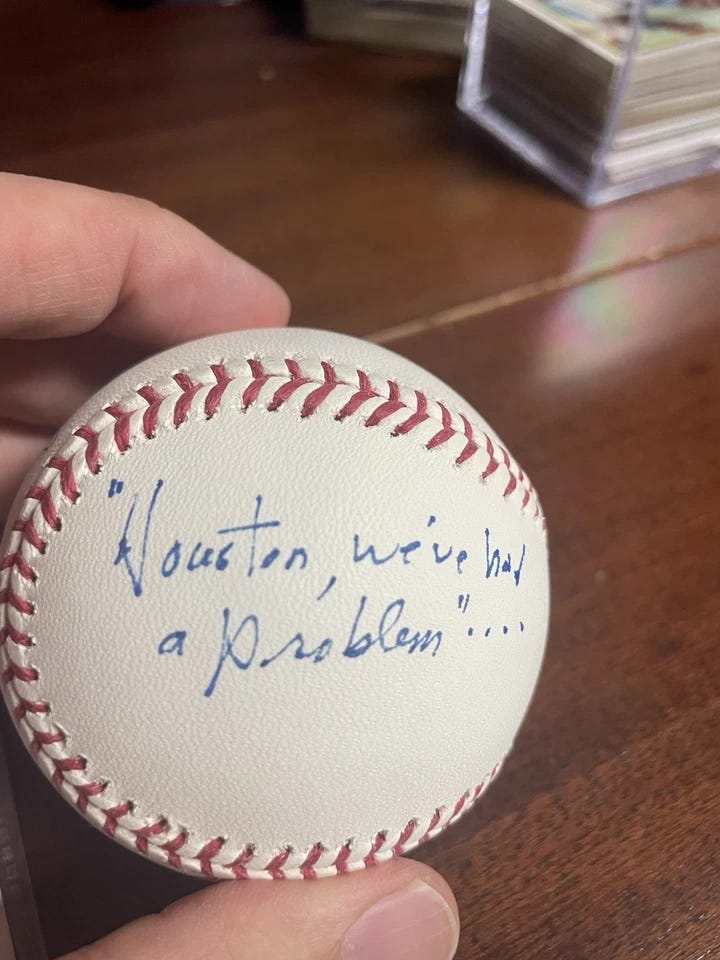 "Houston, we've had
a problem"....